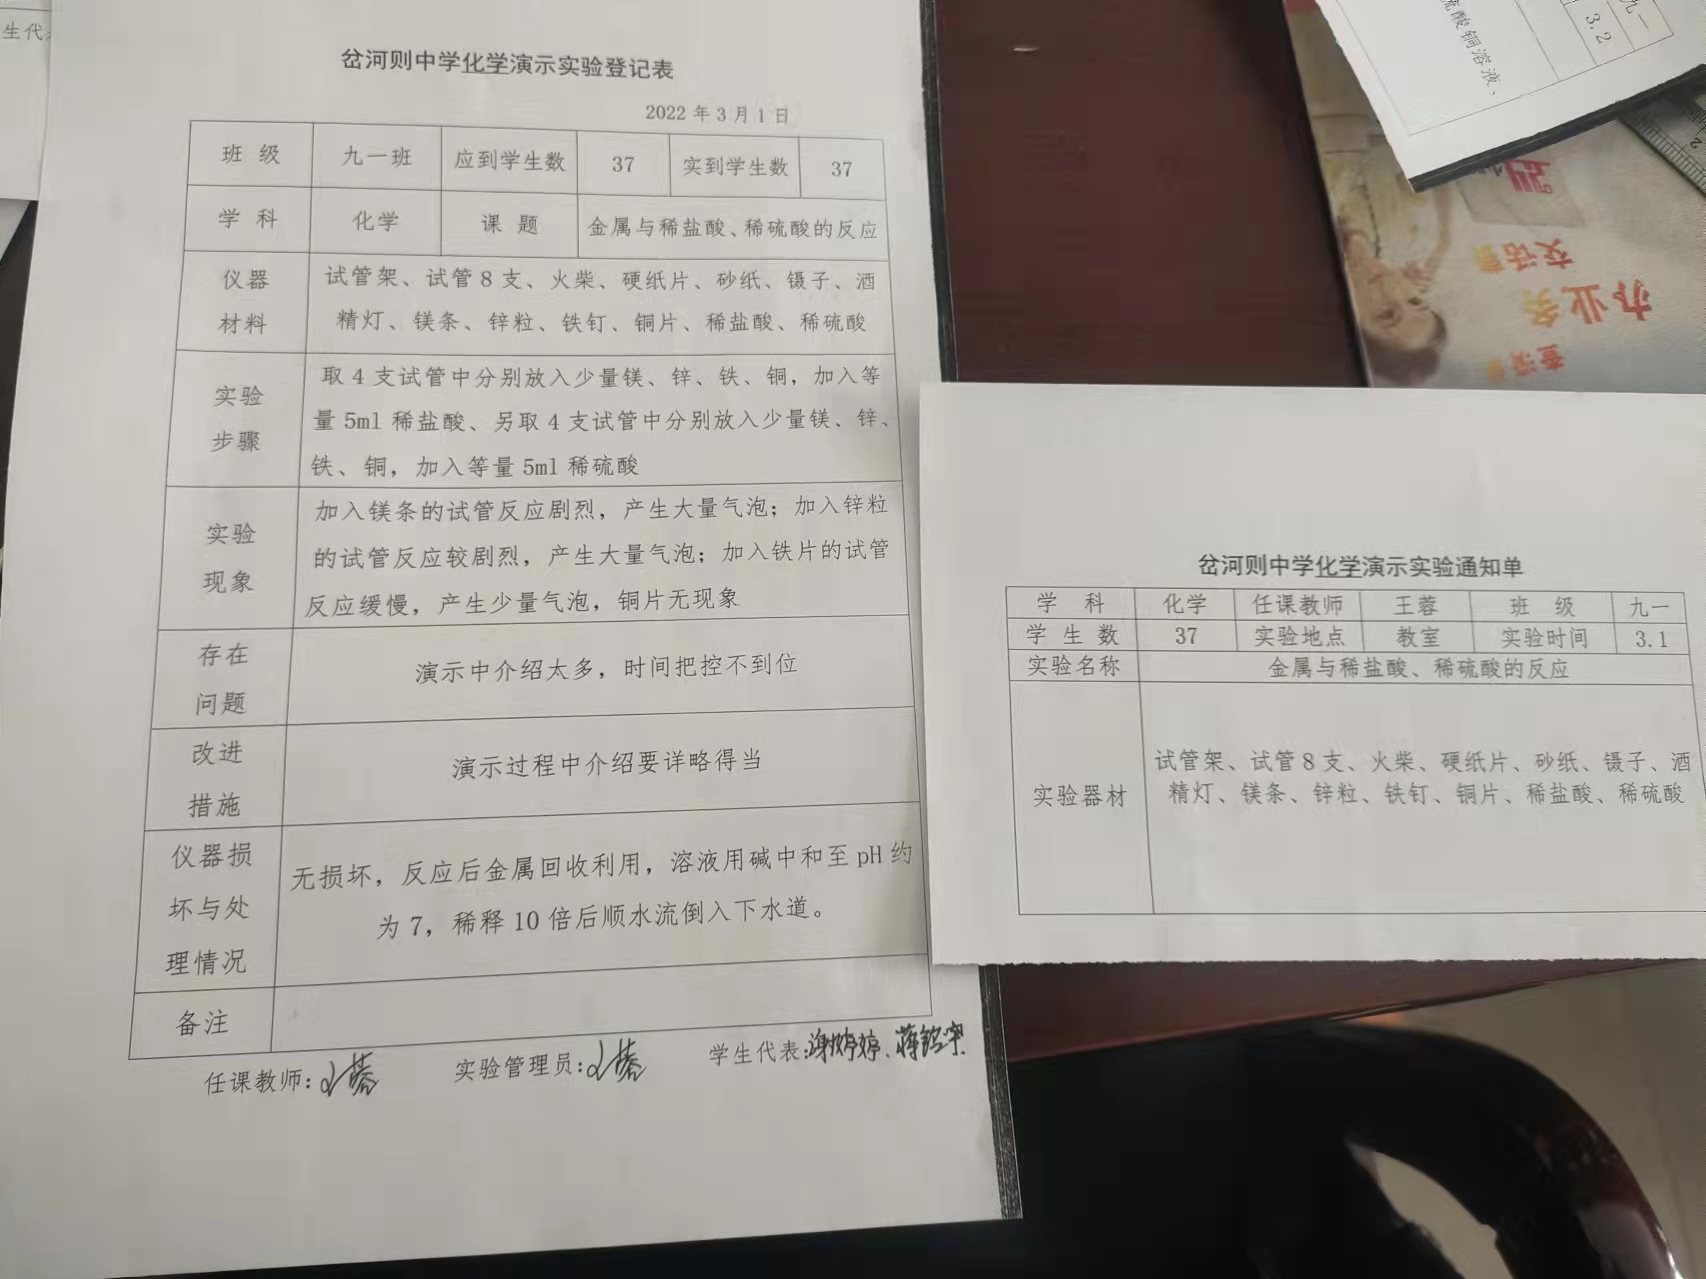 生代
岔河则中学化学演示实验登记表
2022年3月1日
班 级 九一班 应到学生数 37 实到学生数 37
学 科 化学 课 题 金属与稀盐酸、稀硫酸的反应
仪器
材料
试管架、试管8支、火柴、硬纸片、砂纸、镊子、酒
精灯、镁条、锌粒、铁钉、铜片、稀盐酸、稀硫酸
实验
步骤
取4支试管中分别放入少量镁、锌、铁、铜，加入等
量5ml稀盐酸、另取4支试管中分别放入少量镁、锌、
铁、铜，加入等量5ml稀硫酸
实验
现象
加入镁条的试管反应剧烈，产生大量气泡；加入锌粒
的试管反应较剧烈，产生大量气泡；加入铁片的试管
反应缓慢，产生少量气泡，铜片无现象
存在
问题
演示中介绍太多，时间把控不到位
改进
措施
演示过程中介绍要详略得当
仪器损
坏与处
理情况
无损坏，反应后金属回收利用，溶液用碱中和至pH约
为7，稀释10倍后顺水流倒入下水道。
备注
任课教师：王蓉 实验管理员：王蓉 学生代表：谢婷婷、蒋铭宇
九一
3.2
硫酸铜溶液、
办业务
岔河则中学化学演示实验通知单
学 科 化学 任课教师 王蓉 班 级 九一
学 生 数 37 实验地点 教室 实验时间 3.1
实验名称 金属与稀盐酸、稀硫酸的反应
实验器材
试管架、试管8支、火柴、硬纸片、砂纸、镊子、酒
精灯、镁条、锌粒、铁钉、铜片、稀盐酸、稀硫酸